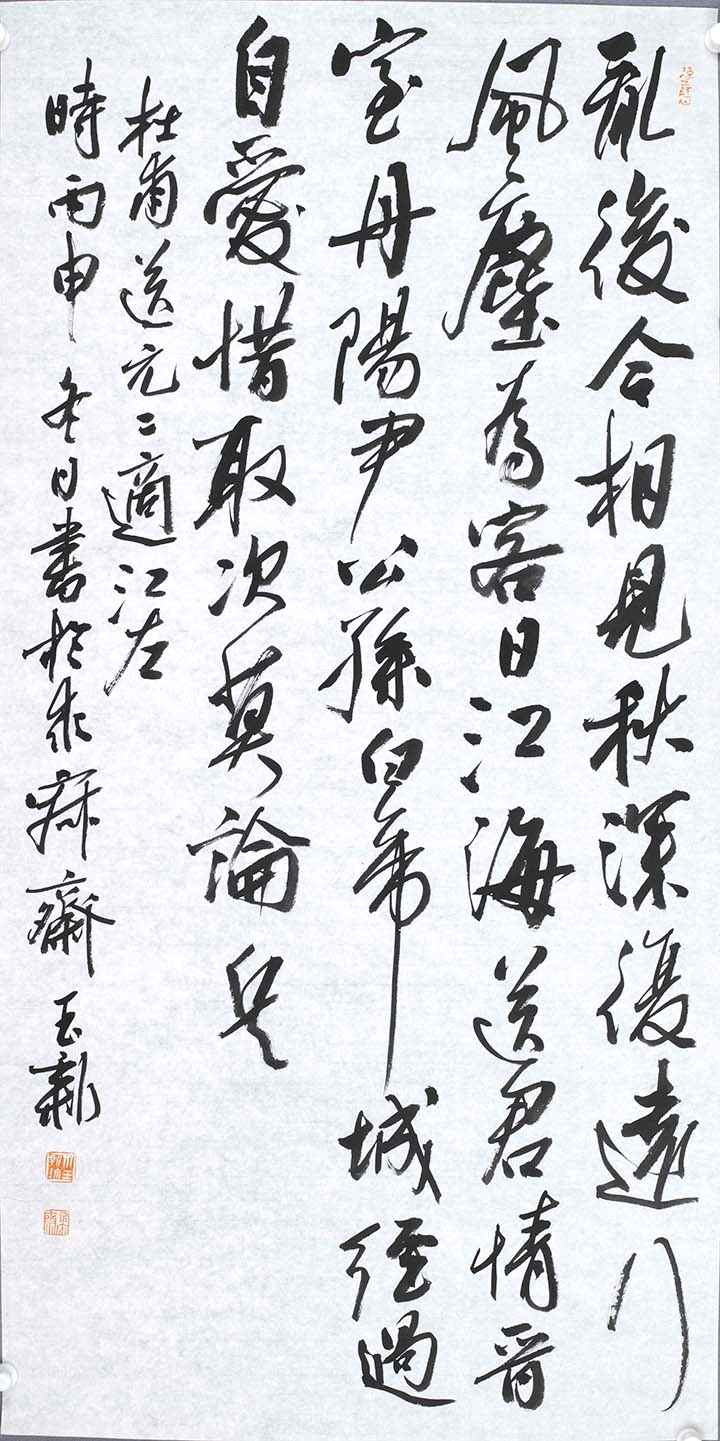 亂後今相見秋深復遠行
風塵為客日江海送君情晉
室丹陽尹公孫白帝城經過
自愛惜取次莫論兵
杜甫送元二適江左
時丙申冬日書於齋玉